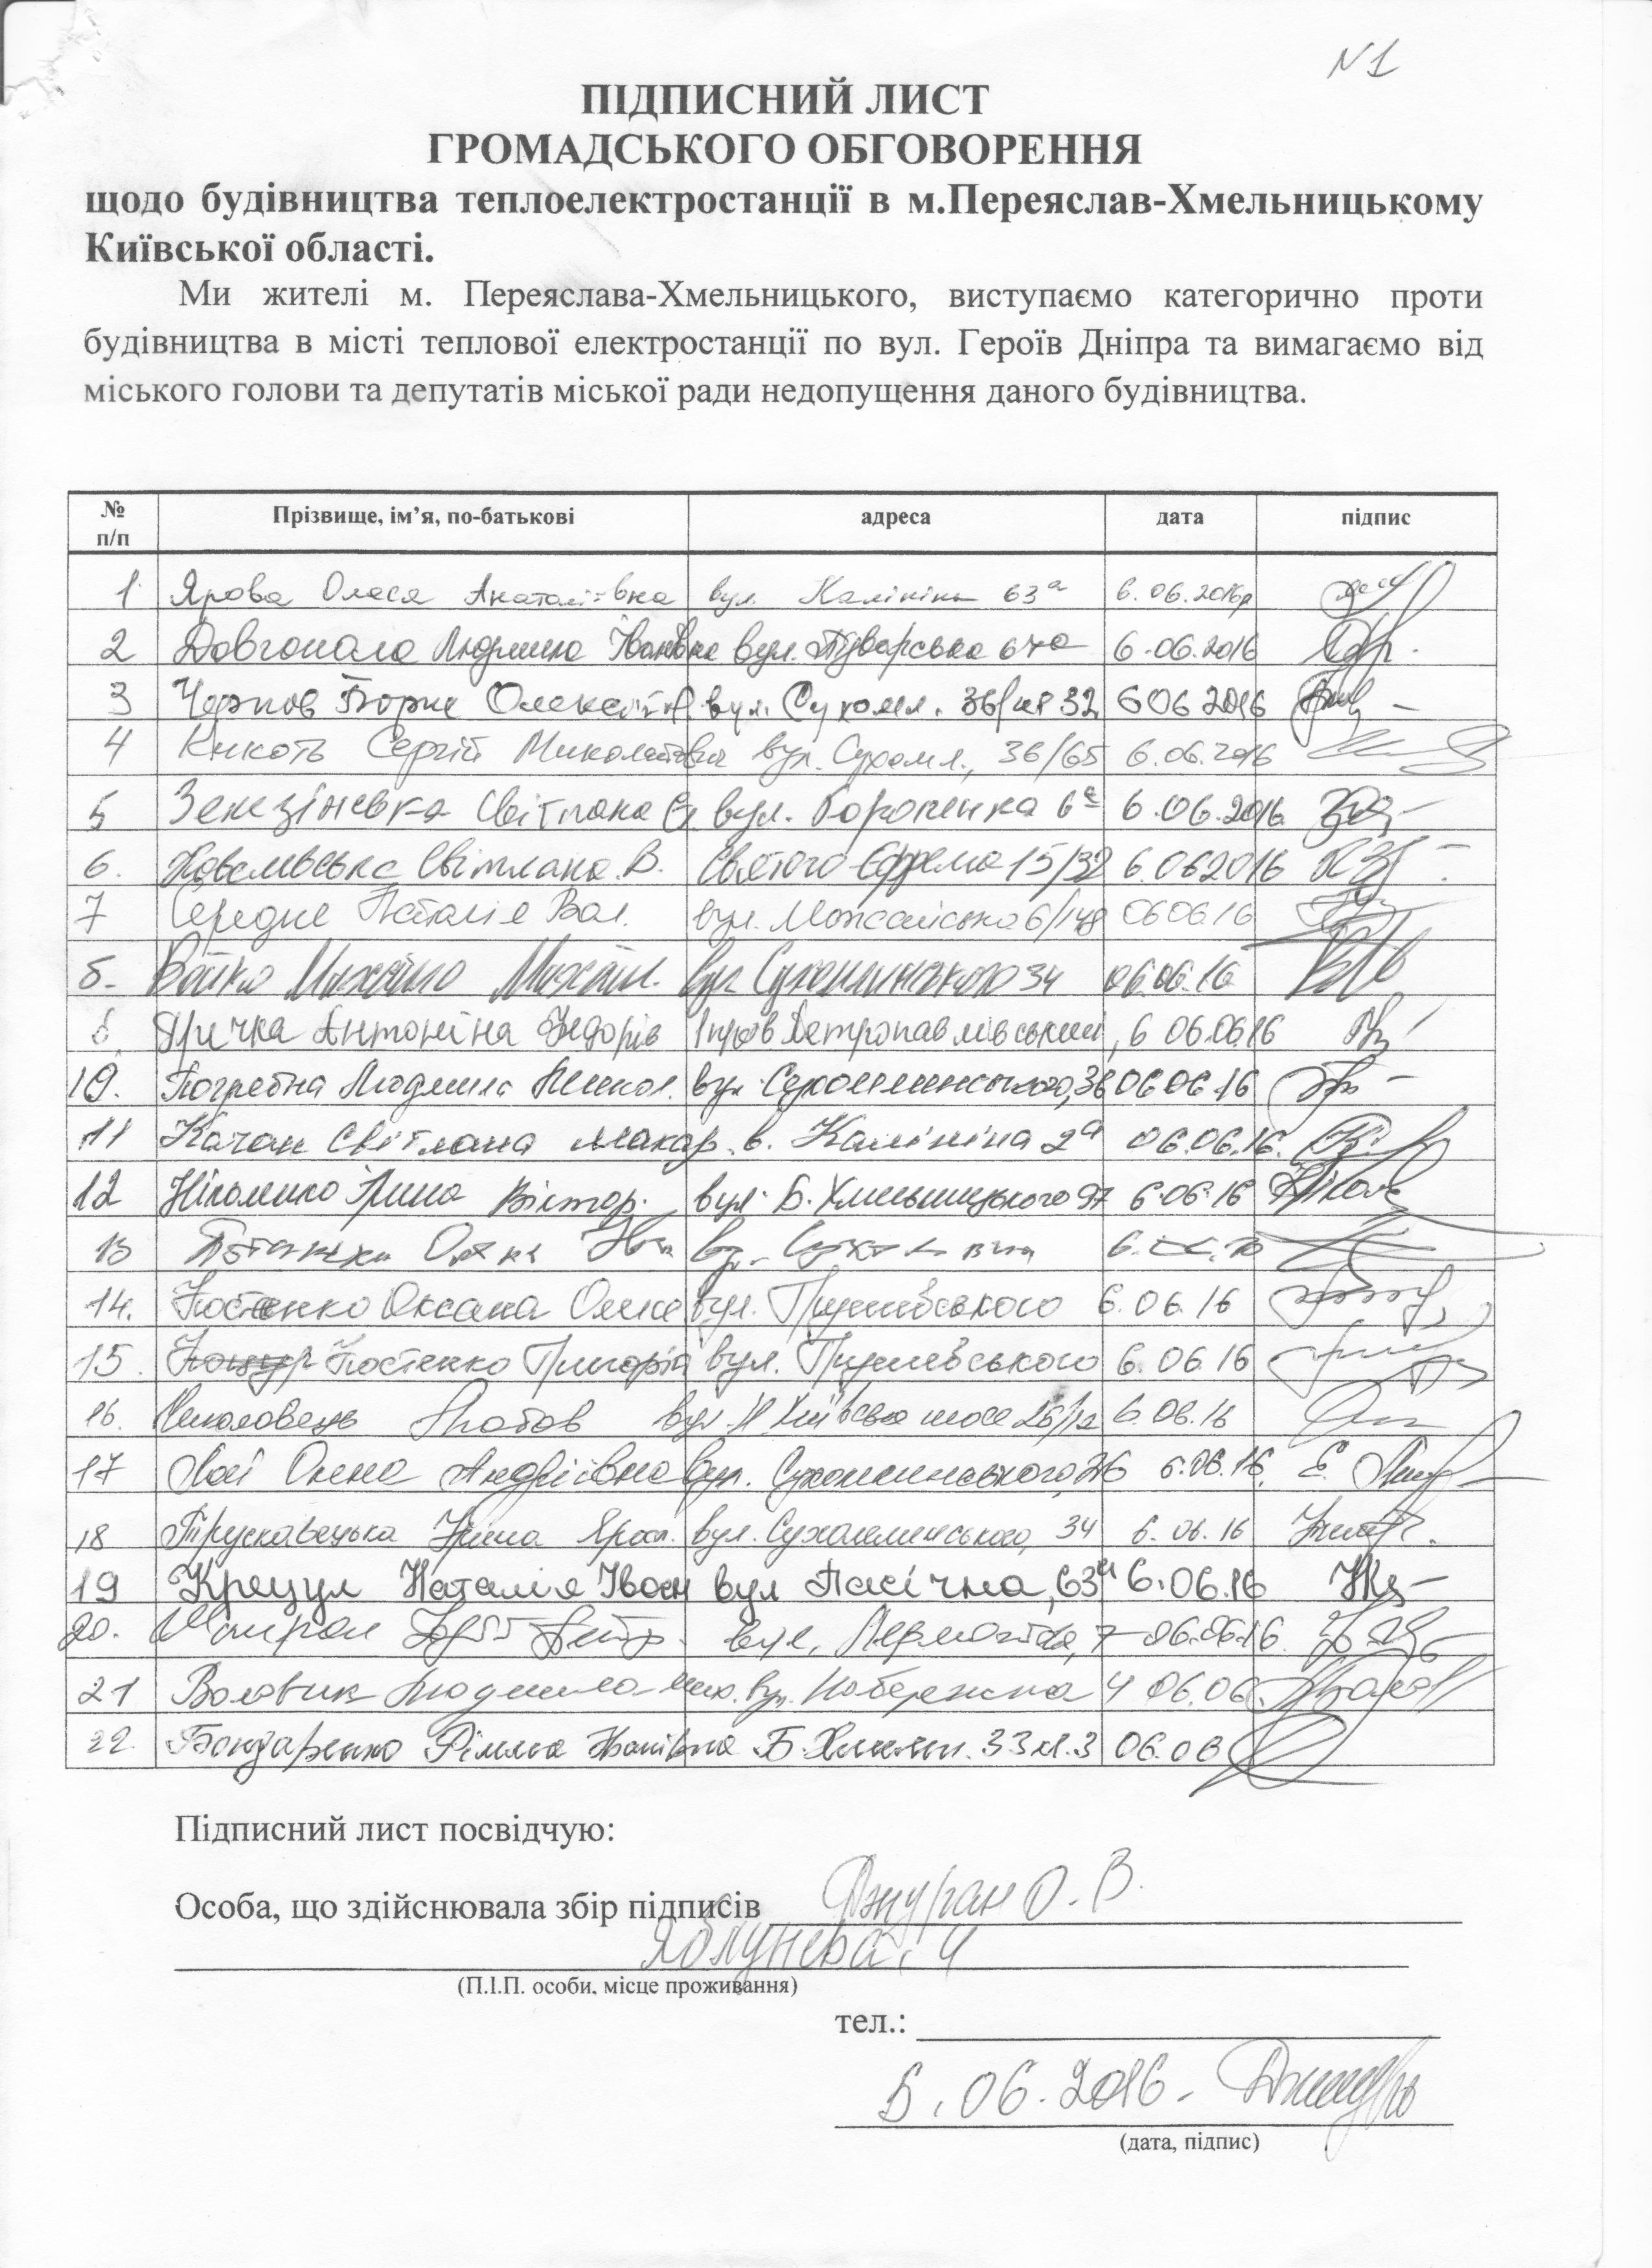 N1
ПІДПИСНИЙ ЛИСТ
ГРОМАДСЬКОГО ОБГОВОРЕННЯ
щодо будівництва теплоелектростанції в м.Переяслав-Хмельницькому
Київської області.
Ми жителі м. Переяслава-Хмельницького, виступаємо категорично проти
будівництва в місті теплової електростанції по вул. Героїв Дніпра та вимагаємо від
міського голови та депутатів міської ради недопущення даного будівництва.
№ п/п Прізвище, ім’я, по-батькові адреса дата підпис
1 Ярова Олеся Анатоліївна вул. Калініна 63а 6.06.2016р
2 Довгопола Людмила Іванівна вул. 67а 6.06.2016
3 Чернов Борис Олексій вул. Сухомл. 36/кв 32 6 06 2016
4 Кикоть Сергій Миколайович вул. Сухомл., 36/65 6.06.2016
5 Світлана вул. 6 6.06.2016
6. Світлана В. Святого Єфрема 15/32 6.06 2016
7 Середне Наталія Вал. вул. Можайська 6/148 06 06 16
Бойко Михайло Михайл. вул Сухомлинського 34 06.06.16
Антоніна Федорів Петропавлівський, 6 06.06.16
10. Погребна Людмила Микол. вул. Сухомлинського, 36 06 06 16
11 Качан Світлана Макар. в. Калініна 2а 06.06.16.
12 Ніколенко Ірина Віктор. вул. Б. Хмельницького 97 6.06.16
13
14. Костенко Оксана Олек вул. 6.06.16
15. Костенко Григорій вул. 6.06.16
16. Любов вул Київське шосе 26/12 6.06.16
17 Олена Андріївна вул. Сухомлинського, 6.06.16.
18 Трускавецька Ірина Яросл. вул. Сухомлинського, 34 6.06.16
19 Крецул Наталія Іван вул Пасічна, 63а 6.06.16
20. вул. Лермонтова, 7 06.06.16.
21 Воловик Людмила Мик. вул. Набережна 4 06.06.
22. Бондаренко Рімма Іванівна Б. Хмельн. 33 кв.3 06.06
Підписний лист посвідчую:
Особа, що здійснювала збір підписів Джуран О. В.
Яблунева, 4
(П.І.П. особи, місце проживання)
тел.:
6.06.2016.
(дата, підпис)